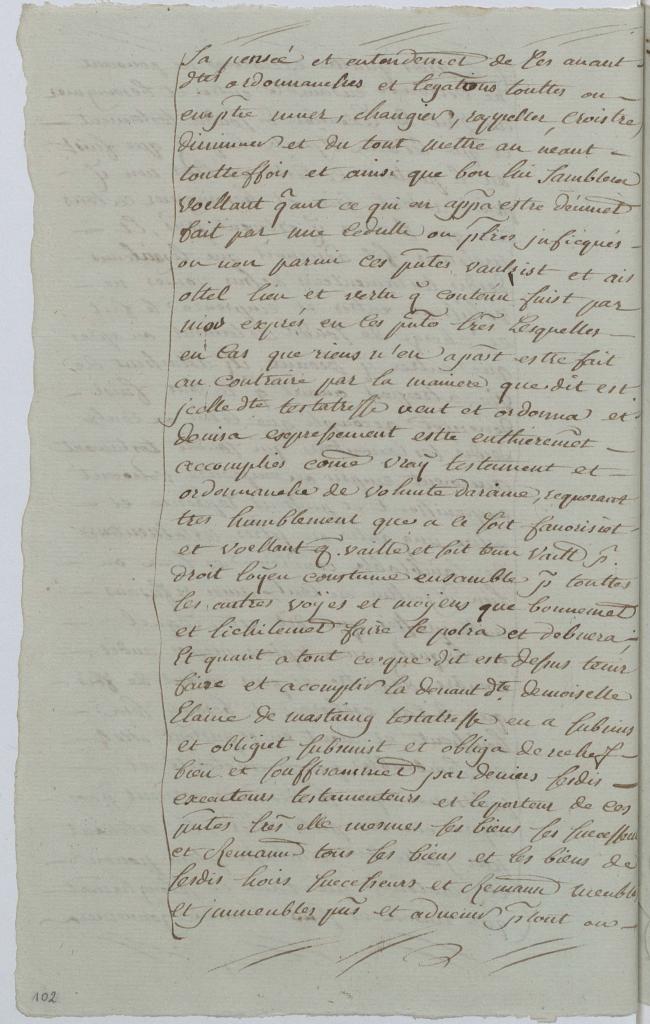 Sa pensée et entendemet de ses avant
dtes ordonnanches et legations touttes ou
emptie muer, changier, rappeller, croistre,
diminuer et du tout mettre au néant
touttesfois et ainsi que bon lui samblera
voellant qant ce qui en appa estre deümet
fait par une cedulle ou pltres jusficqués
ou non parmi ces pntes vaulsist et
ottel lieu et vertu q̃ contenu fuist par
mos exprés en ces pntes Lrẽs Lesquelles
en cas que riens n'en apast estre fait
au contraire par la maniere que dit est
jcelle dte testatresse veut et ordonna et
devisa expressement estre enthieremet
accomplies come vraÿ testament et
ordonnanche de volunte daraine, requerant
tres humblement que a ce soit favorisiet
et voellant q̃ vaille et soit tenu vaill p.
droit loÿen coustume ensamble p touttes
les autres voÿes et moÿens que bonnemet
et lichitemet faire le polra et debvera,
Et quant a tout ce que dit est dessus tenir
faire et acomplir la devant dte demoiselle
Elaine de mastaing testatresse en a submis
et obligiet submist et obliga de rechef
bien et souffisamment par deviers sesdis
executeurs testamenteurs et le porteur de ces
pntes Lrẽs elle mesmes ses biens ses successeurs
et Remanñ tous ses biens et les biens de
sesdis hoirs successeurs et Remanñ meubles
et jmmeubles pns et advenir p tout ou
102